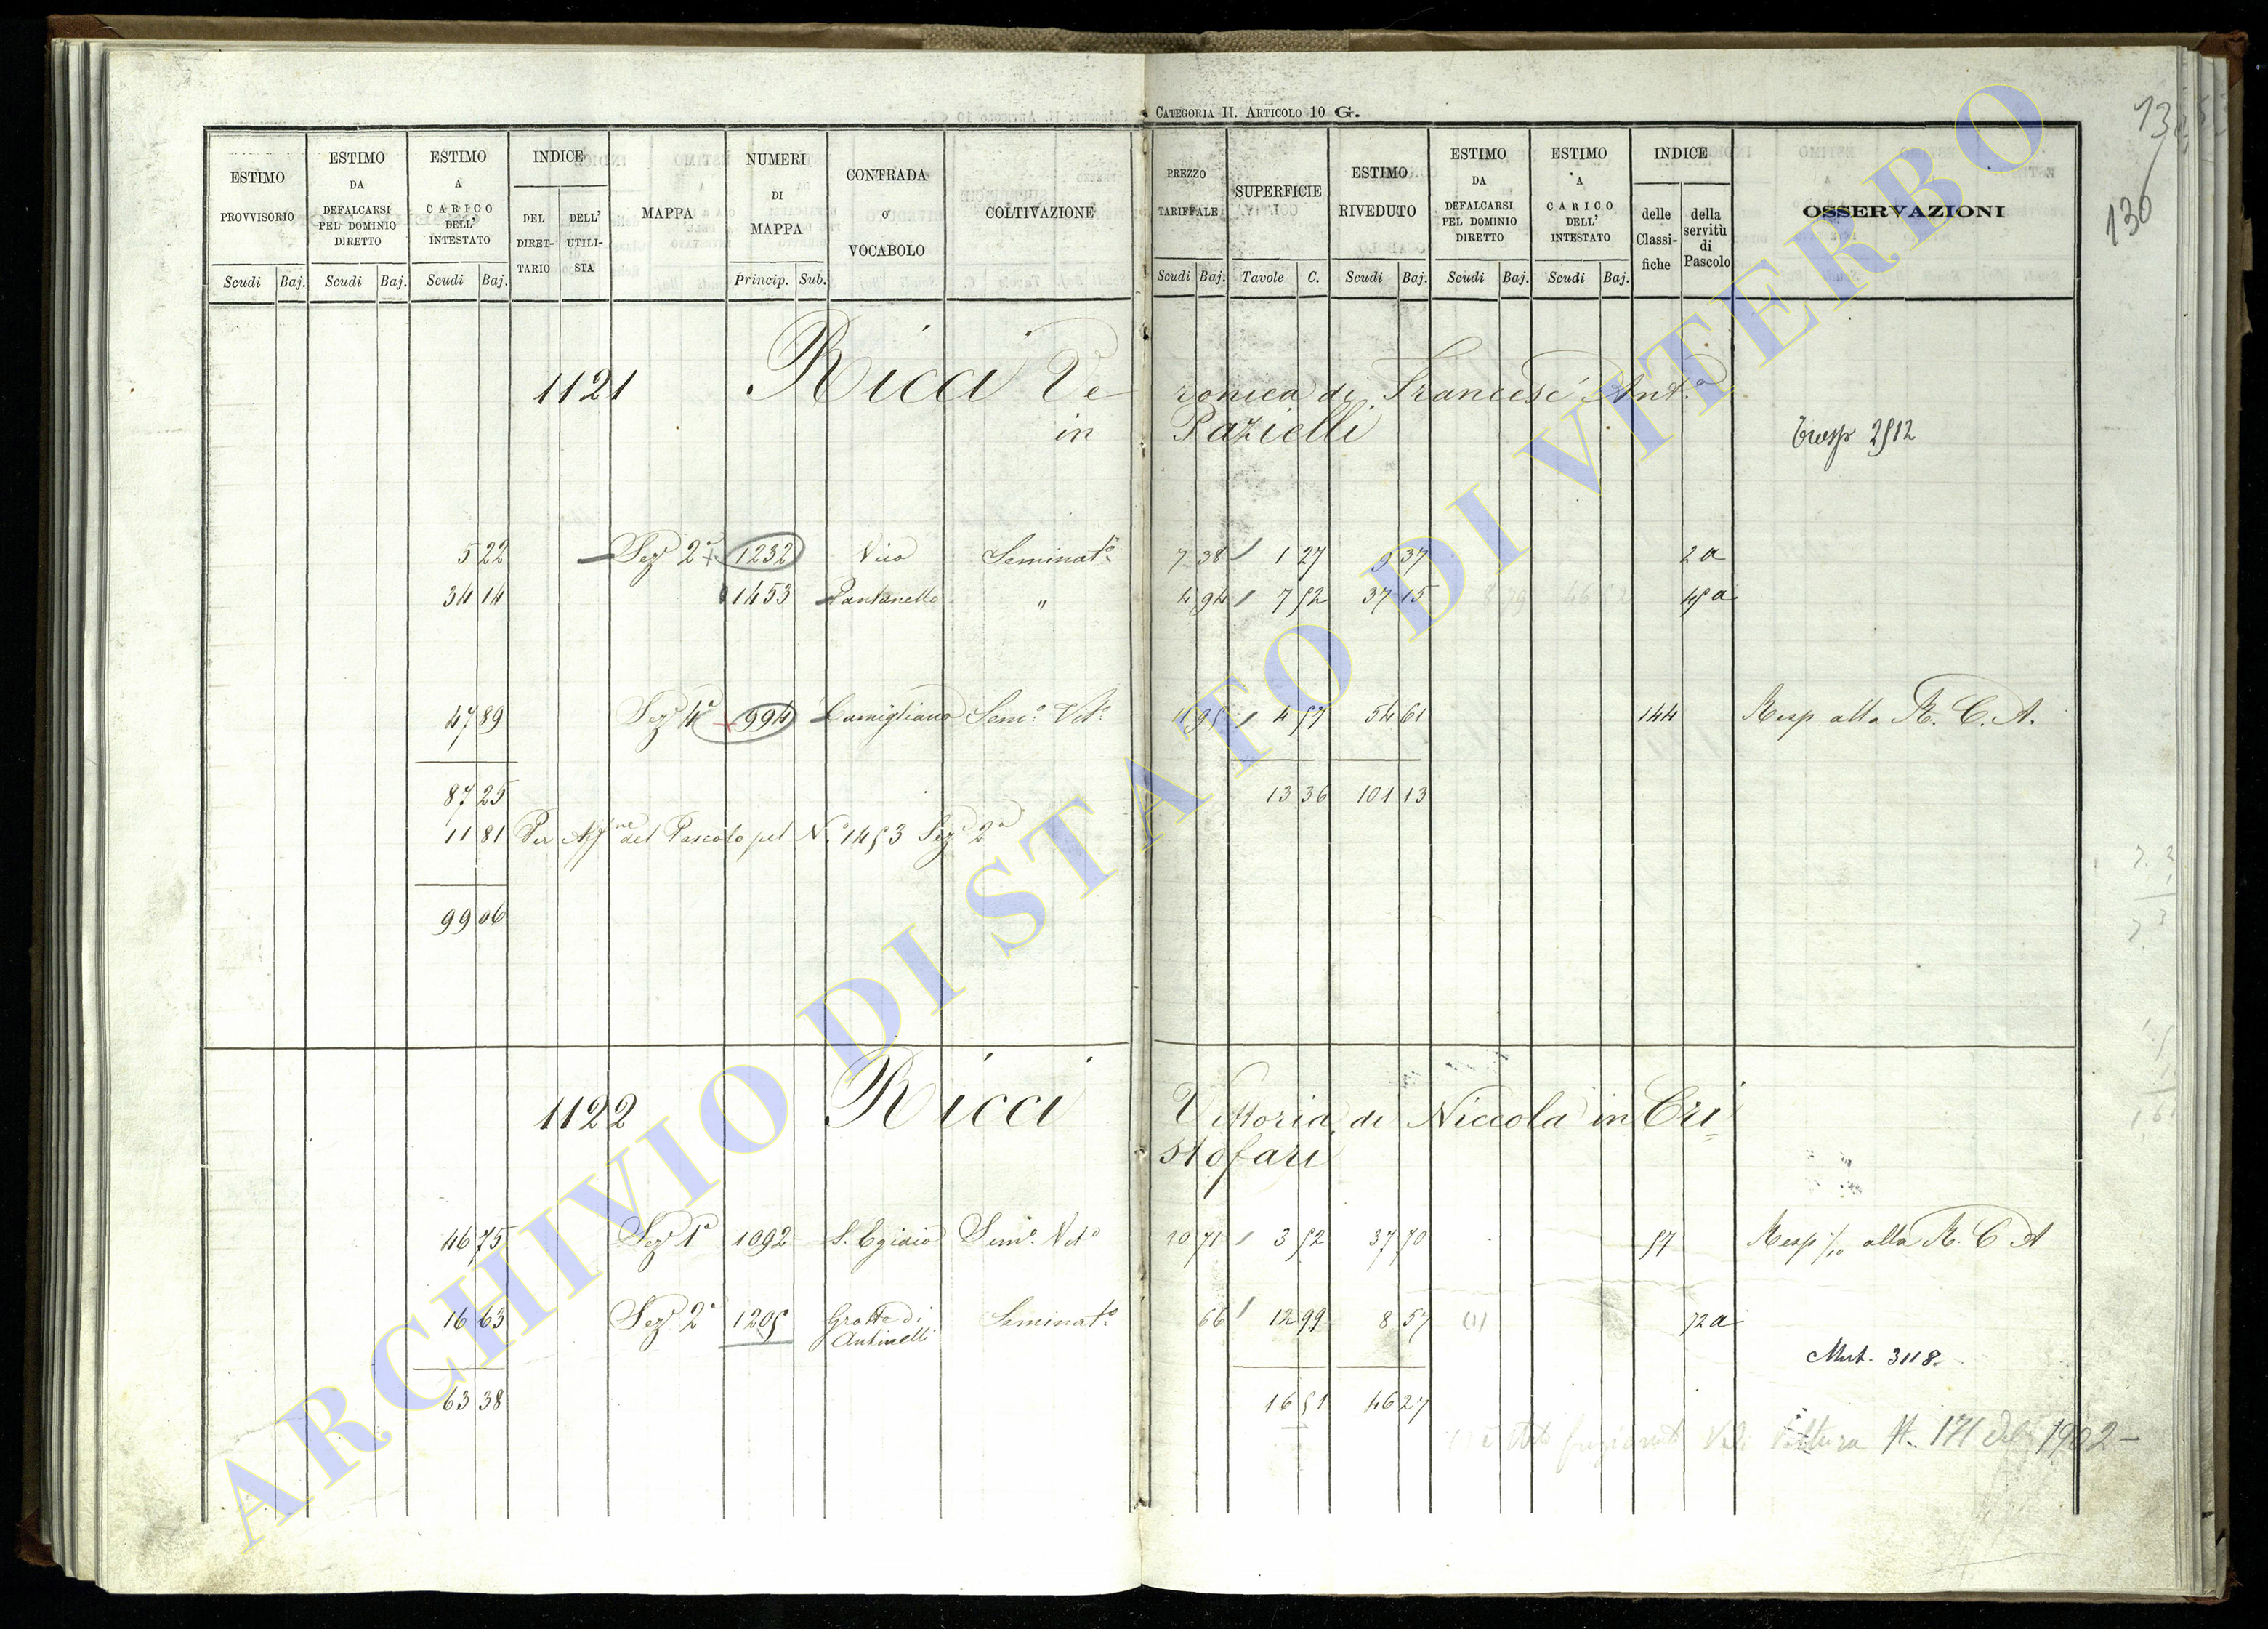 CATEGORIA II. ARTICOLO 10 G.
130
ESTIMO PROVVISORIO
ESTIMO DA DEFALCARSI PEL DOMINIO DIRETTO
ESTIMO A CARICO DELL' INTESTATO
INDICE
DEL DIRET-TARIO
DELL' UTILI-STA
MAPPA
NUMERI DI MAPPA
CONTRADA o VOCABOLO
COLTIVAZIONE
PREZZO TARIFFALE
SUPERFICIE
ESTIMO RIVEDUTO
ESTIMO DA DEFALCARSI PEL DOMINIO DIRETTO
ESTIMO A CARICO DELL' INTESTATO
INDICE
delle Classi-fiche
della servitù di Pascolo
OSSERVAZIONI
Scudi Baj. Scudi Baj. Scudi Baj. Princip. Sub. Scudi Baj. Tavole C. Scudi Baj. Scudi Baj. Scudi Baj.
1121 Ricci Ve ronica di Francesc' Ant.º
in Pazielli
Trasp 2512
5 22 Sezº 2ª 1232 Vico Seminatº 7 38 1 27 9 37 2a
34 14 1453 Pantanello " 4 94 7 52 37 15 45a
47 89 Sezº 4ª 994 Camigliano Semº Vitº 4 57 54 61 144 Resp alla R. C. A.
87 25 13 36 101 13
11 81 Per Affne del Pascolo pel Nº 1453 Sezº 2ª
99 06
1122 Ricci Vittoria di Niccola in Cri
stofari
46 75 Sezº 1ª 1092 S. Egidio Semº Vitº 10 71 3 52 37 70 57 Resp 1/10 alla R. C A
16 63 Sezº 2ª 1205 Grotte di Antinelli Seminatº 66 12 99 8 57 (1) 72a
Mut. 3118.
63 38 16 51 46 27
(1) è stato frazionato Vedi Voltura N. 171 del 1902 –
ARCHIVIO DI STATO DI VITERBO